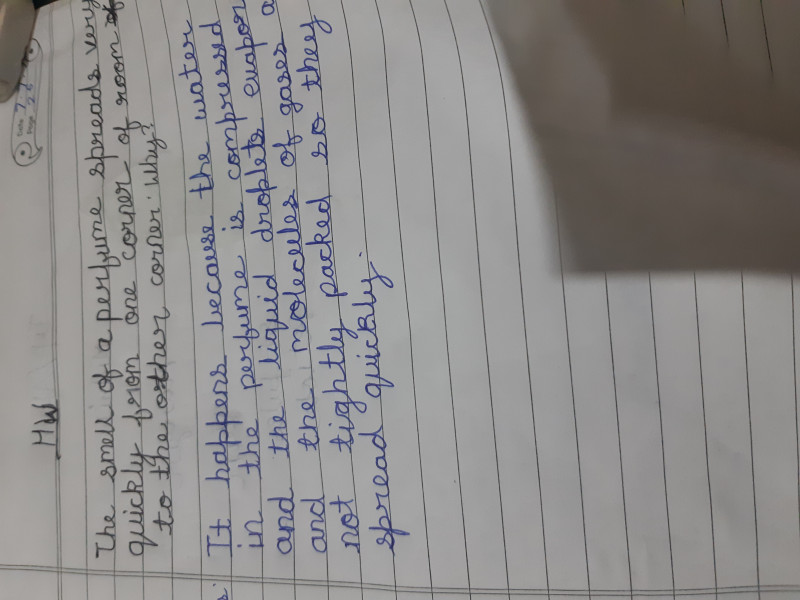 HW
The smell of a perfume spreads very
quickly from one corner of room
to the other corner. Why?
It happens because the water
in the perfume is compressed
and the liquid droplets evapor
and the molecules of gases a
not tightly packed so they
spread quickly.